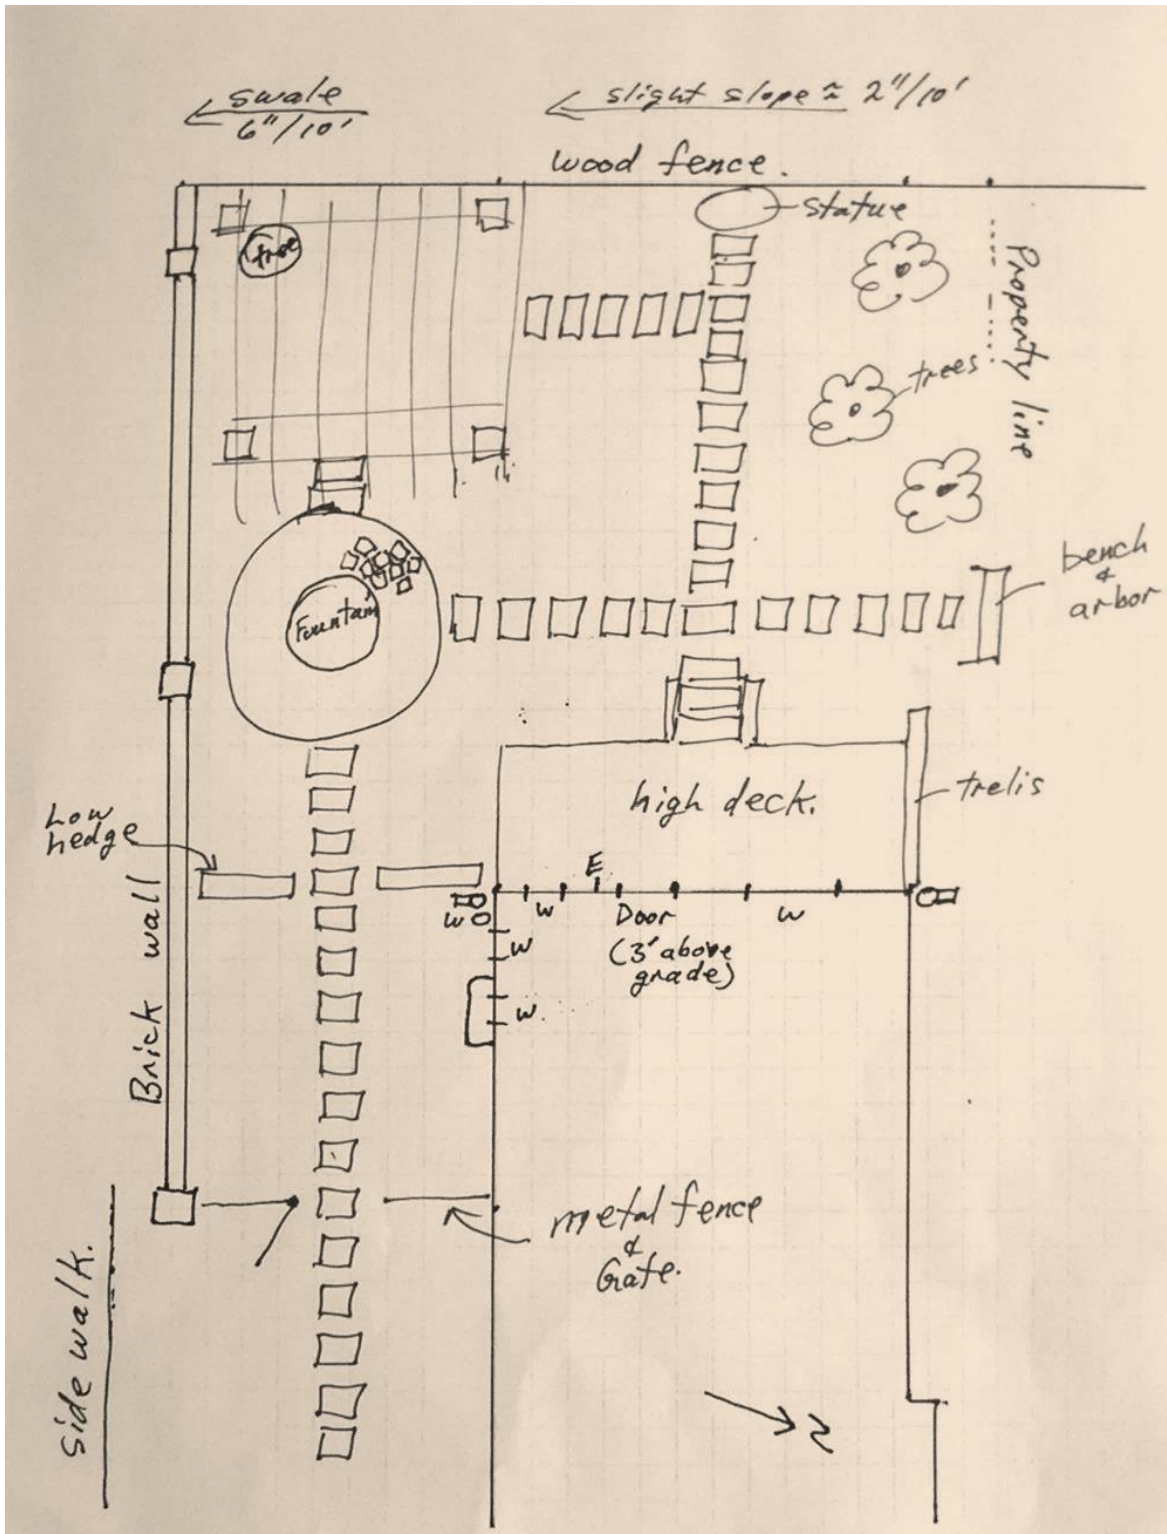 swale
6"/10'
slight slope ≈ 2"/10'
wood fence.
statue
tree
Property line
trees
bench
&
arbor
Fountain
high deck.
trelis
Low
hedge
E
w
w
Door
w
(3' above
grade)
w
w.
Brick wall
metal fence
&
Gate.
Side walk.
N